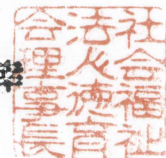 社会福祉
法人徳育
会理事長